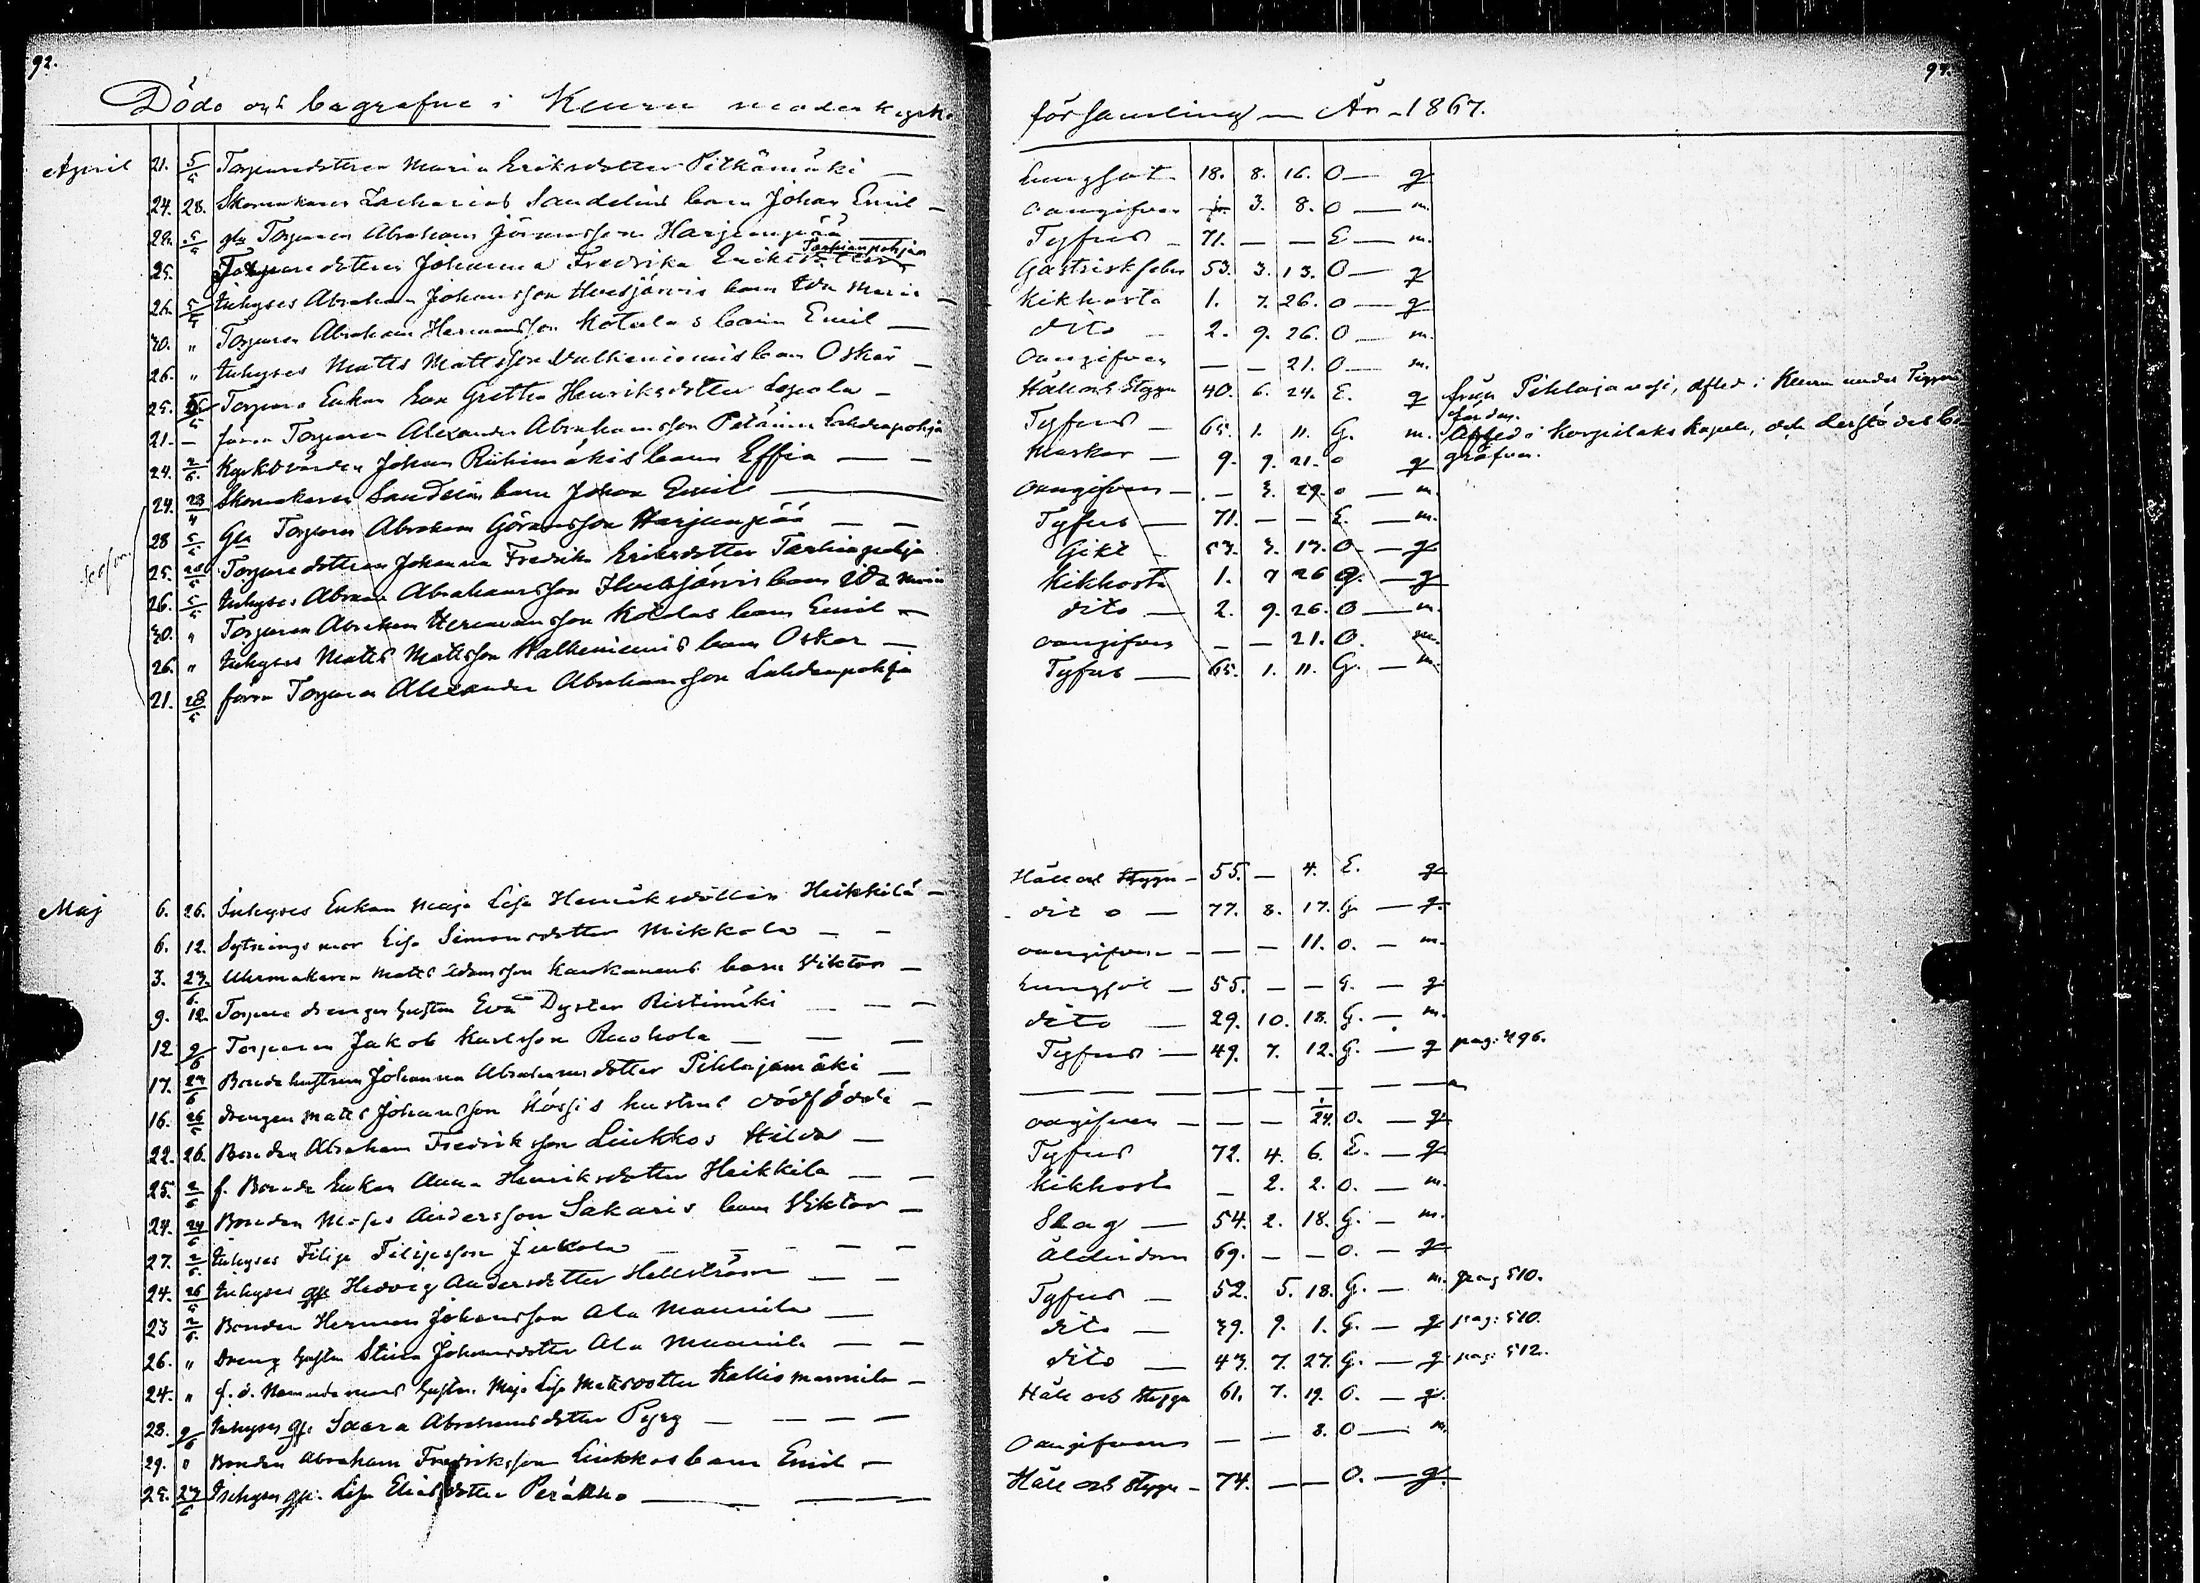 92.
Döde och begrafne i Keuru moderkyrko
April 21. 5/5 Torparedottren Maria Eriksdotter Pitkämäki —
24. 28. Skomakaren Zacharias Sandelins barn Johan Emil —
28. 5/5 gla Torparen Abraham Jöransson Harjunpää —
Tarhianpohja
25. Torparedottren Johanna Fredrika Eriksdotter
26. 5/5 Inhyses Abraham Johansson Huttjärvis barn Ida Maria —
30. " Torparen Abraham Hermansson Kotalas barn Emil —
26. " Inhyses Matts Mattsson Valkeiniemis barn Oskar —
25. Torpare Enkan Eva Gretha Henriksdotter Lepola —
21. — förra Torparen Alexander Abrahamsson Lahdenpohja
24. 2/6. Kyrkovärden Johan Riihimäkis barn Effia — —
24. 28/4 Skomakaren Sandelins barn Johan Emil —
28 5/5 Gla Torparen Abraham Göransson Harjunpää — —
25. Torparedottren Johanna Fredrika Eriksdotter Tarhiapohja
26. 5/5 Inhyses Abraham Abrahamsson Huttjärvis barn Ida Maria
30. " Torparen Abraham Hermansson Kotalas barn Emil —
26. " Inhyses Matts Mattsson Valkeiniemis barn Oskar —
21. 28/5 förra Torparen Alexander Abrahamsson Lahdenpohja
Maj 6. 26. Inhyses Enkan Maja Lisa Henriksdotter Heikkilä —
6. 12. Sytnings mor Lisa Simonsdotter Mikkola — —
3. 23/6. Uhrmakaren Matts Adamsson Kaukanens barn Viktor —
9. 12. Torpare drengens hustru Eva Dyster Ristimäki — — —
12 9/6 Torparen Jakob Karlsson Ruohola — — —
17. 24/6 Bondehustrun Johanna Abrahamsdotter Pihlajamäki —
16. 26/5 drengen Matts Johansson Kössis hustrus dödfödde —
22. 26. Bonden Abraham Fredriksson Liukkos Hilda —
25. 2/6 f. Bonde Enkan Anna Henriksdotter Heikkilä — —
24. 24/6 Bonden Moses Andersson Sakaris barn Viktor —
27. 2/6. Inhyses Filip Filipsson Jukola — — — —
24. 26/5 Inhyses qp. Hedvig Andersdotter Hellström — —
23 2/6. Bonden Herman Johansson Ala Mannila —
26. " Dreng hustru Stina Johansdotter Ala Mannila — —
24. " f. d. Nämndemans hustru Maja Lisa Matsdotter Kalliomannila —
28. 9/6 Inhyses qp. Saara Abrahamsdotter Pyrg — — — —
29. " Bonden Abraham Fredriksson Liukkos barn Emil —
25. 27/6 Inhyses qp. Lisa Eliasdotter Peräkko — —
93.
församling — År 1867.
Lungsot 18. 8. 16. O — q
oangifven 3. 8. O — m.
Tyfus — 71. — — E — m.
Gastriskfeber 53. 3. 13. O — q
Kikhosta 1. 7. 26. O — q
dito — 2. 9. 26. O — m.
Oangifven — — 21. O — m.
Håll och Stygn 40. 6. 24. E. q från Pihlajavesi, afled i Keuru under
Tyfus — 65. 1. 11. G. m. Afled i Korpilaks Kapell, och derstädes be-
Maskar — 9. 9. 21. O q grafven.
Oangifven — . — 3. 29. O — m.
Tyfus — 71. — — E. — m.
Gikt — 53. 3. 13. O — q
Kikhosta 1. 7 26 O. — q
dito — 2. 9. 26. O — m.
oangifven — — 21. O. m.
Tyfus — 65. 1. 11. G. — m
Håll och Stygn — 55. — 4. E. q
dito — 77. 8. 17. G — q.
oangifven — — — 11. O. — m.
Lungsot — 55. — — G. — q
dito — 29. 10. 18. G. — m.
Tyfus — 49. 7. 12. G. — q pag: 496.
— — — — — — —
oangifven — — — 1/24. O. — q
Tyfus 72. 4. 6. E. — q
Kikhosta — 2. 2. O. — m.
Slag — 54. 2. 18. G. — m.
Ålderdom 69. — — O. — q
Tyfus — 52. 5. 18. G. — m. pag 510.
dito — 39. 9. 1. G. — q pag: 510.
dito — 43. 7. 27. G. — q pag: 512.
Håll och Stygn 61. 7. 19. O. — q.
Oangifven — — 8. O — m
Håll och Stygn — 74. — — O. — q.